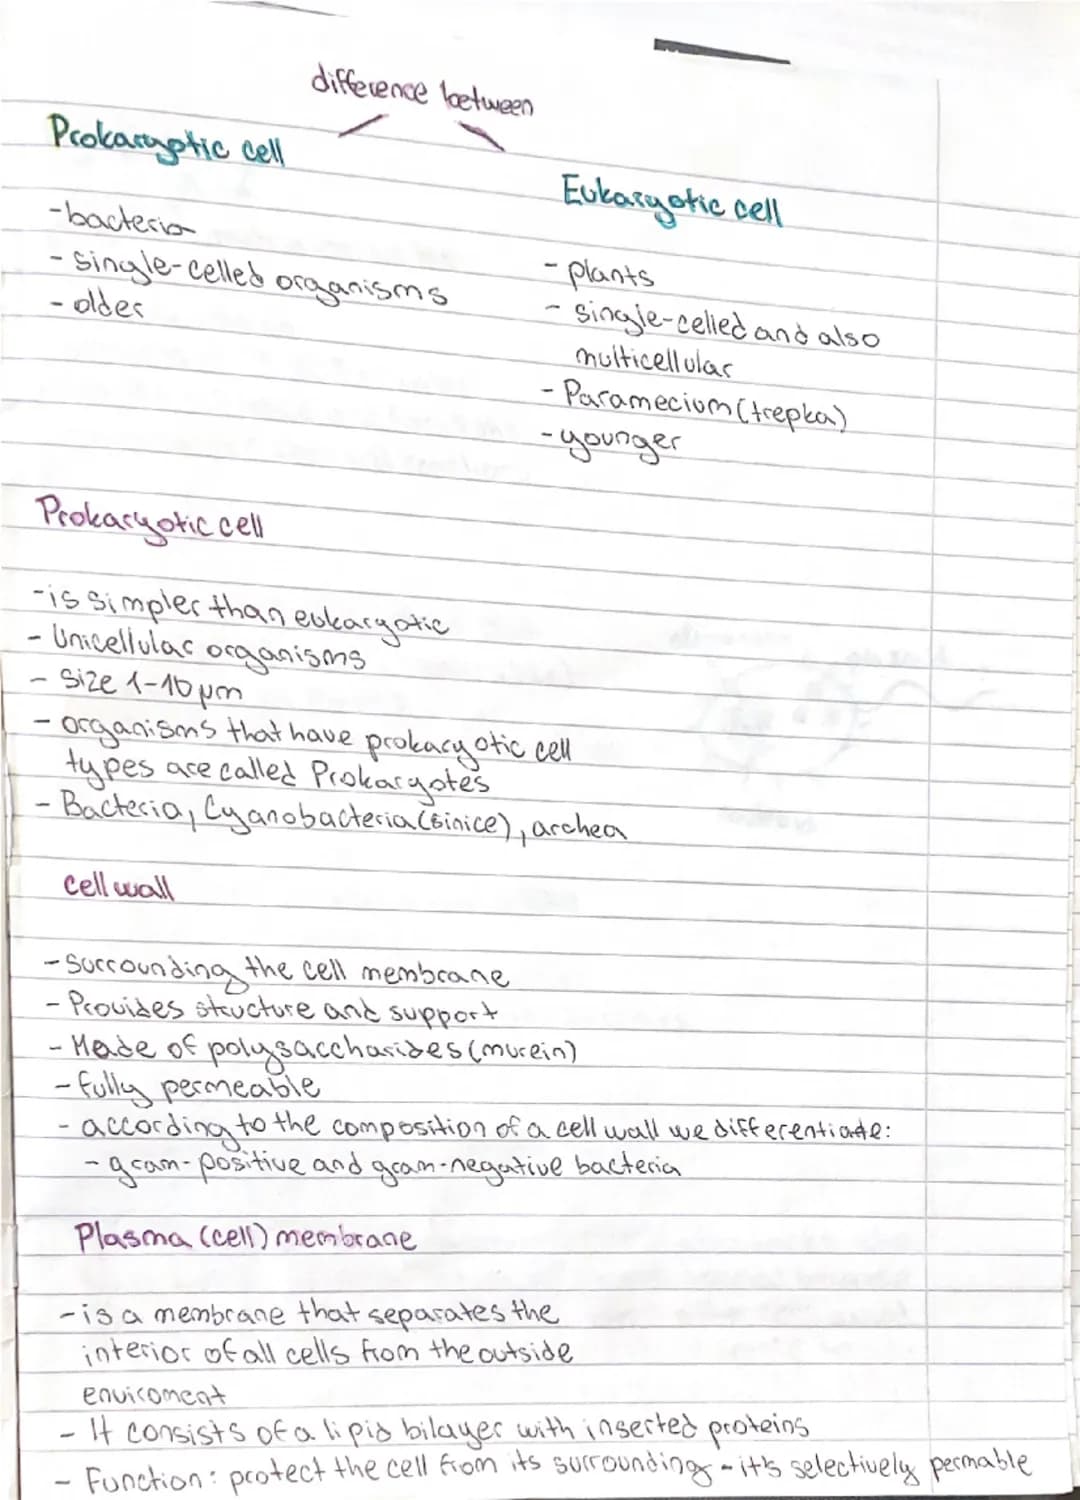 difference between
Prokaryotic cell
-bacteria
- single-celled organisms
- older
Eukaryotic cell
- plants
- single-celled and also
multicellular
- Paramecium (trepka)
- younger
Prokaryotic cell
- is simpler than eukaryotic
- Unicellular organisms
- Size 1-10 µm
- organisms that have prokaryotic cell
types are called Prokaryotes
- Bacteria, Cyanobacteria (sinice), archea
cell wall
- surrounding the cell membrane
- Provides structure and support
- Made of polysaccharides (murein)
- fully permeable
- according to the composition of a cell wall we differentiate:
- gram-positive and gram-negative bacteria
Plasma (cell) membrane
- is a membrane that separates the
interior of all cells from the outside
enviroment
- It consists of a lipid bilayer with inserted proteins
- Function: protect the cell from its surrounding - it's selectively permable